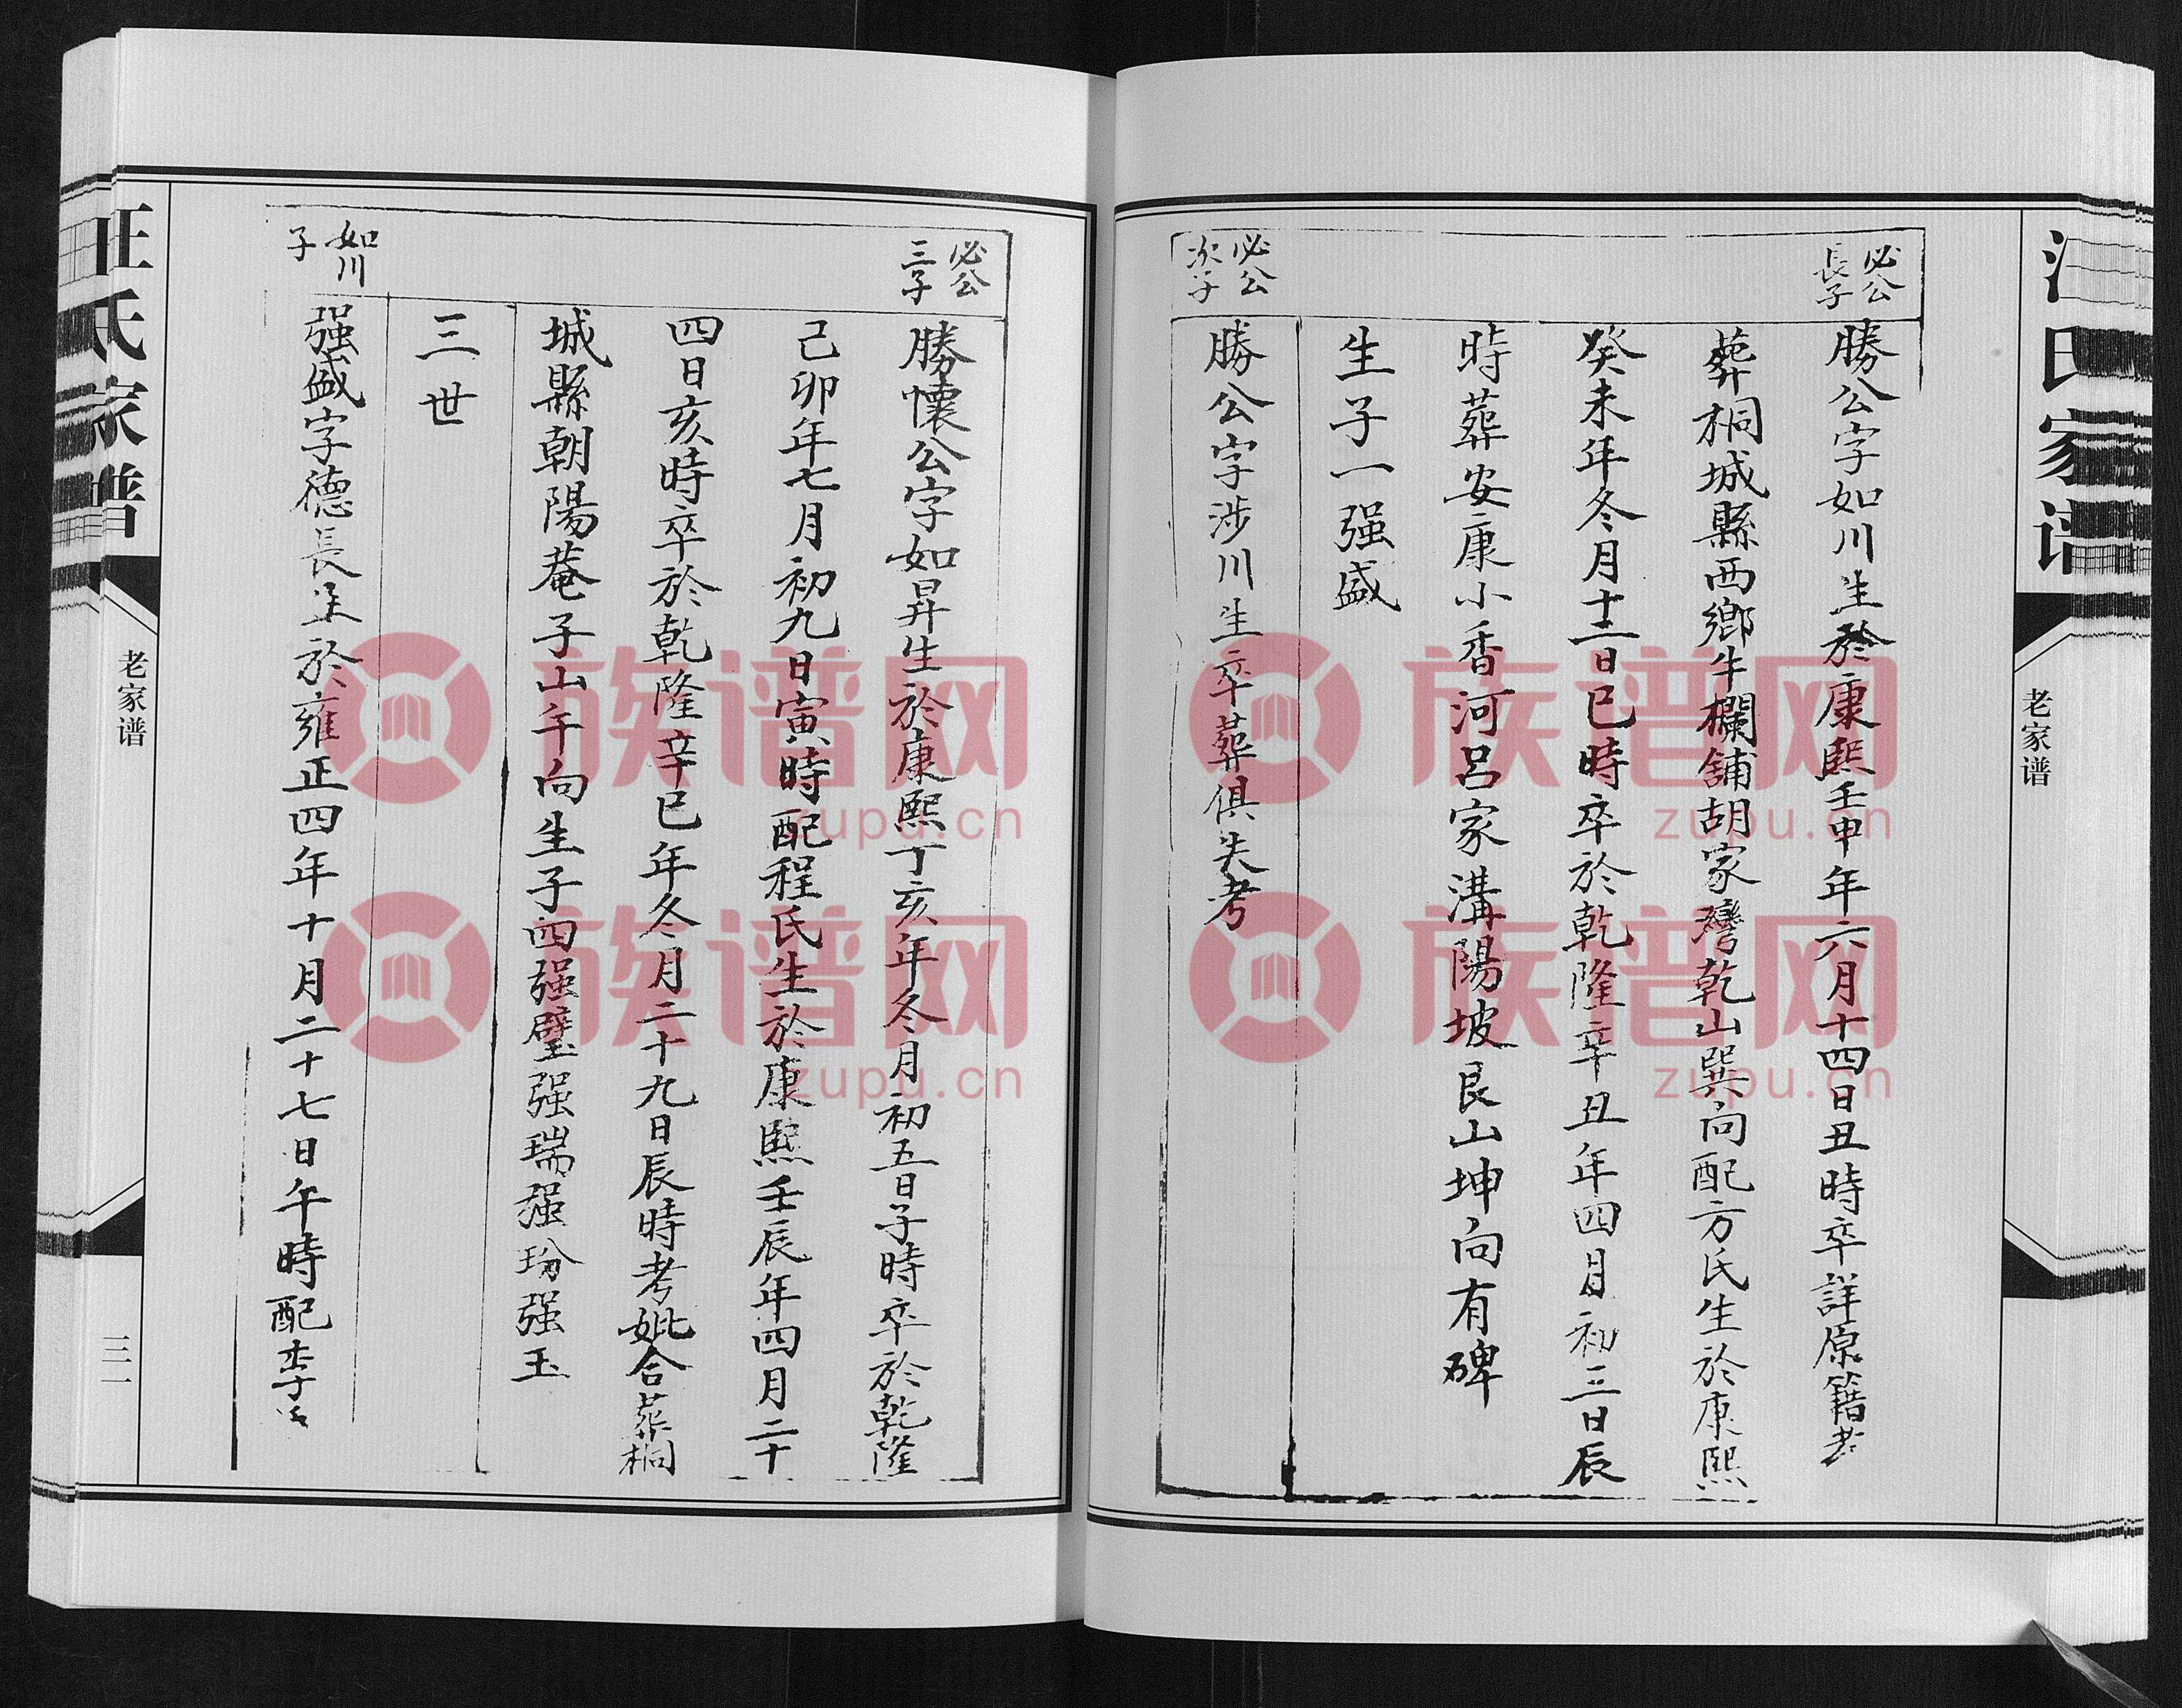 氏家谱
老家谱
必公
長子
勝公字如川生於康熙壬申年六月十四日丑時卒詳原籍老
葬桐城縣西鄉牛欄舖胡家灣乾山巽向配方氏生於康熙
癸未年冬月十二日巳時卒於乾隆辛丑年四月初三日辰
時葬安康小香河呂家溝陽坡艮山坤向有碑
生子一强盛
必公
次子
勝公字涉川生卒葬俱失考
必公
三子
勝懷公字如昇生於康熙丁亥年冬月初五日子時卒於乾隆
己卯年七月初九日寅時配程氏生於康熙壬辰年四月二十
四日亥時卒於乾隆辛巳年冬月二十九日辰時考妣合葬桐
城縣朝陽菴子山午向生子四强璧强瑞强玢强玉
三世
如川
子
强盛字德長生於雍正四年十月二十七日午時配李氏
汪氏家谱
老家谱
三一
族谱网
zupu.cn
族谱网
zupu.cn
族谱网
zupu.cn
族谱网
zupu.cn